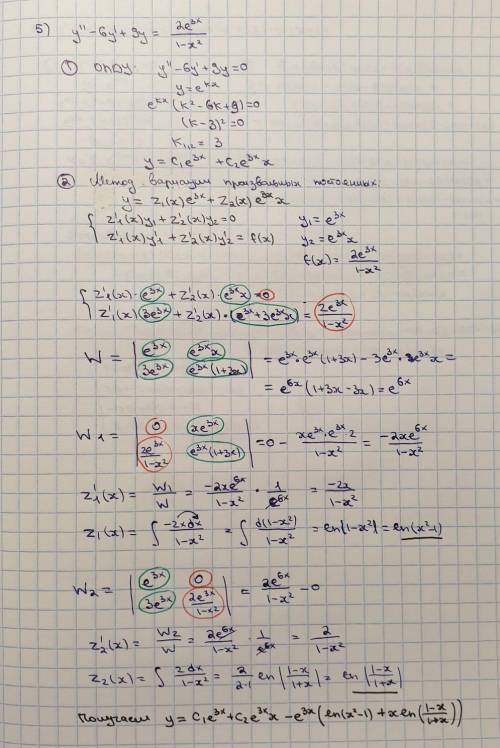 5) y'' - 6y' + 9y = 2e^{3x}/(1-x²)
① ОЛДУ: y'' - 6y' + 9y = 0
y = e^{kx}
e^{kx}(k² - 6k + 9) = 0
(k-3)² = 0
k₁,₂ = 3
y = C₁e^{3x} + C₂e^{3x}x
② Метод вариации произвольных постоянных:
y = z₁(x)e^{3x} + z₂(x)e^{3x}x
{ z₁'(x)y₁ + z₂'(x)y₂ = 0    y₁ = e^{3x}
{ z₁'(x)y₁' + z₂'(x)y₂' = f(x)    y₂ = e^{3x}x
f(x) = 2e^{3x}/(1-x²)
{ z₁'(x)·e^{3x} + z₂'(x)·e^{3x}x = 0
{ z₁'(x)·3e^{3x} + z₂'(x)·(e^{3x} + 3e^{3x}x) = 2e^{3x}/(1-x²)
W = | e^{3x}  e^{3x}x ; 3e^{3x}  e^{3x}(1+3x) | = e^{3x}·e^{3x}(1+3x) - 3e^{3x}·e^{3x}x =
= e^{6x}(1+3x-3x) = e^{6x}
W₁ = | 0  xe^{3x} ; 2e^{3x}/(1-x²)  e^{3x}(1+3x) | = 0 - xe^{3x}·e^{3x}·2/(1-x²) = -2xe^{6x}/(1-x²)
z₁'(x) = W₁/W = -2xe^{6x}/(1-x²) · 1/e^{6x} = -2x/(1-x²)
z₁(x) = ∫ -2xdx/(1-x²) = ∫ d(1-x²)/(1-x²) = ln|1-x²| = ln(x²-1)
W₂ = | e^{3x}  0 ; 3e^{3x}  2e^{3x}/(1-x²) | = 2e^{6x}/(1-x²) - 0
z₂'(x) = W₂/W = 2e^{6x}/(1-x²) · 1/e^{6x} = 2/(1-x²)
z₂(x) = ∫ 2dx/(1-x²) = 2/(2·1) ln|(1-x)/(1+x)| = ln|(1-x)/(1+x)|
Получаем y = C₁e^{3x} + C₂e^{3x}x - e^{3x}(ln(x²-1) + x ln(1-x)/(1+x))